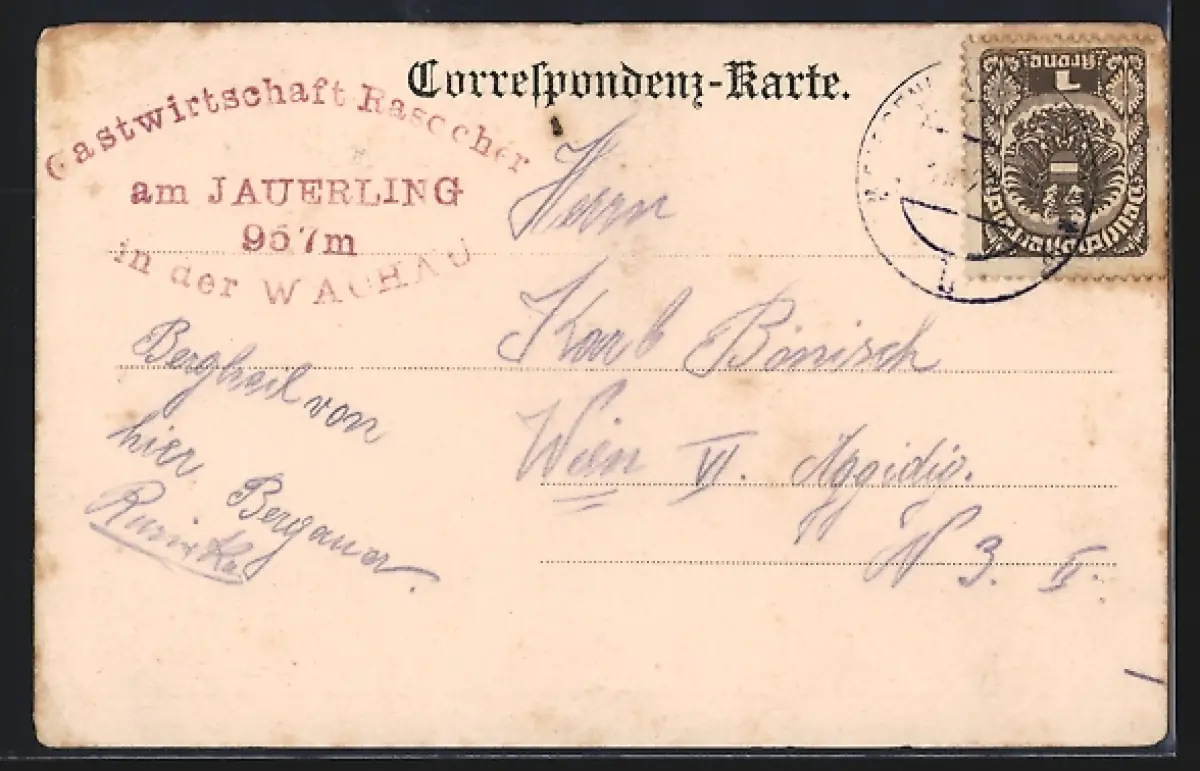 Correspondenz-Karte.
Gastwirtschaft Rascher
am JAUERLING
957m
in der WACHAU
1 Krone
Deutschösterreich
Herrn
Karl Bönisch
Wien VI. Aegidig.
N 3. II.
Bergheil von
hier
Bergauer.